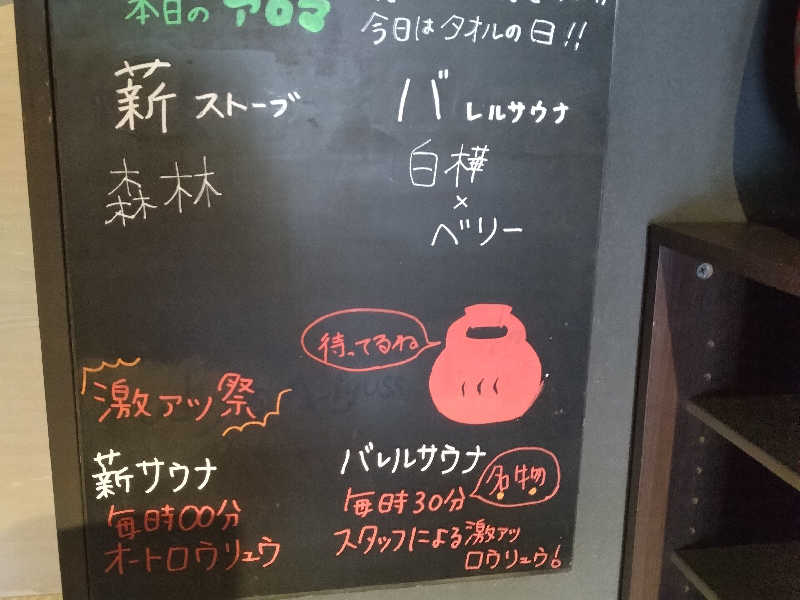 本日の アロマ
今日は タオルの日!!
薪 ストーブ
森林
バレルサウナ
白樺
×
ベリー
待ってるね
激アツ祭
薪サウナ
毎時00分
オートロウリュウ
バレルサウナ
毎時30分
名物
スタッフによる激アツ
ロウリュウ!